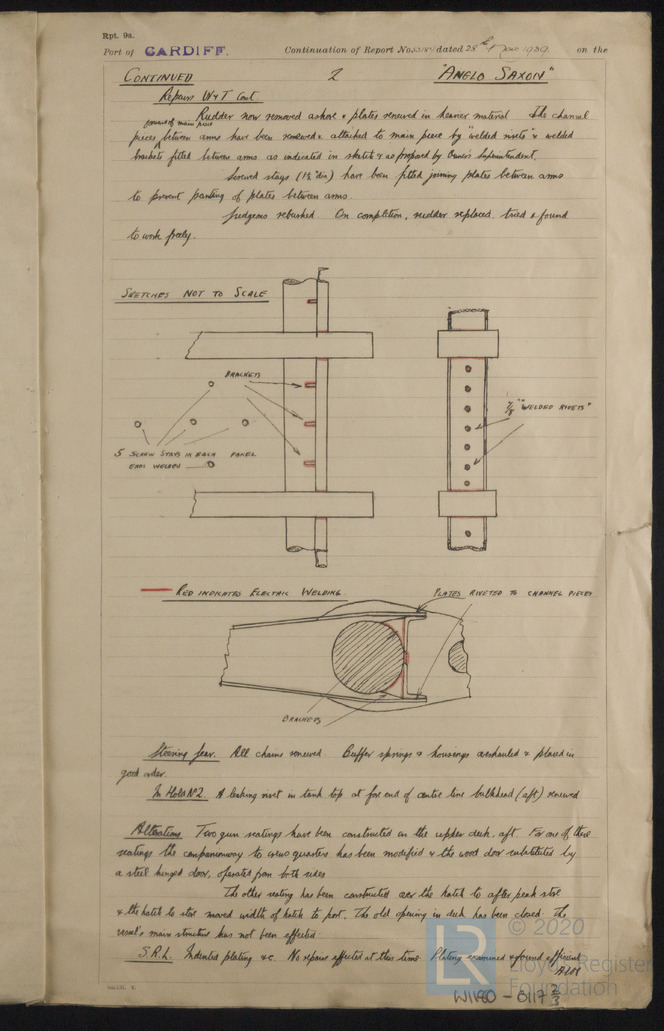 Rpt. 9a.
Port of CARDIFF. Continuation of Report No. 53184 dated 28th Nov 1939. on the
CONTINUED 2 "ANGLO SAXON"
Repairs W&T Cont
Rudder now removed ashore & plates renewed in heavier material The channel
forward of main piece
pieces between arms have been renewed & attached to main piece by "welded rivets" & welded
brackets fitted between arms as indicated in sketch & as proposed by Owner's Superintendent.
Screwed stays (1½" dia) have been fitted joining plates between arms
to prevent panting of plates between arms.
Gudgeons rebushed. On completion, rudder replaced, tried & found
to work freely.
SKETCHES NOT TO SCALE
BRACKETS
7/8 "WELDED RIVETS"
5 SCREW STAYS IN EACH PANEL
ENDS WELDED
RED INDICATES ELECTRIC WELDING
PLATES RIVETED TO CHANNEL PIECES
BRACKETS
Steering Gear. All chains renewed. Buffer springs & housings overhauled & placed in
good order.
In Hold No 2. A leaking rivet in tank top at for end of centre line bulkhead (aft) renewed
Alterations Two gun seatings have been constructed on the upper deck, aft. For one of these
seatings the companionway to crews quarters has been modified & the wood door substituted by
a steel hinged door, operated from both sides
The other seating has been constructed over the hatch to after peak store
& the hatch to store moved width of hatch to port. The old opening in deck has been closed. The
vessel's main structure has not been effected.
S.R.L. Indented plating &c. No repairs effected at this time. Plating examined & found efficient
© 2020
LR
Lloyd's Register
Foundation
W1180 - 0117 2/3